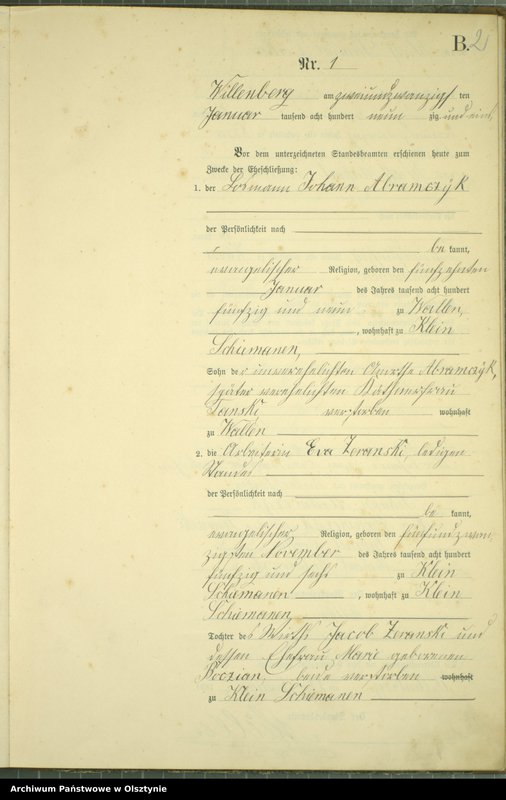 B. 2
Nr. 1
Willenberg am zweiundzwanzigsten
Januar tausend acht hundert neunzig und eins
Vor dem unterzeichneten Standesbeamten erschienen heute zum
Zwecke der Eheschließung:
1. der Losmann Johann Abramczÿk
der Persönlichkeit nach
bekannt,
evangelischer Religion, geboren den fünfzehnten
Januar des Jahres tausend acht hundert
fünfzig und neun zu Wallen,
, wohnhaft zu Klein
Schiemanen,
Sohn der unverehelichten Abramczÿk,
später verehelichten Käthnerfrau
Tanski verstorben wohnhaft
zu Wallen
2. die Arbeiterin Eva Zeranski, ledigen
Standes
der Persönlichkeit nach
bekannt,
evangelischer Religion, geboren den fünfundzwan
zigsten November des Jahres tausend acht hundert
fünfzig und sechs zu Klein
Schiemanen, wohnhaft zu Klein
Schiemanen
Tochter des Wirths Jacob Zeranski und
dessen Ehefrau Marie geborenen
Boczian beide verstorben wohnhaft
zu Klein Schiemanen
Archiwum Państwowe w Olsztynie